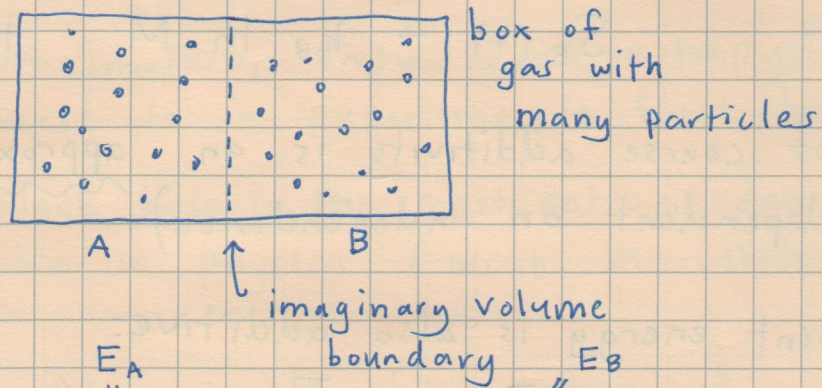 box of
gas with
many particles
A B
imaginary volume
boundary
E_A E_B